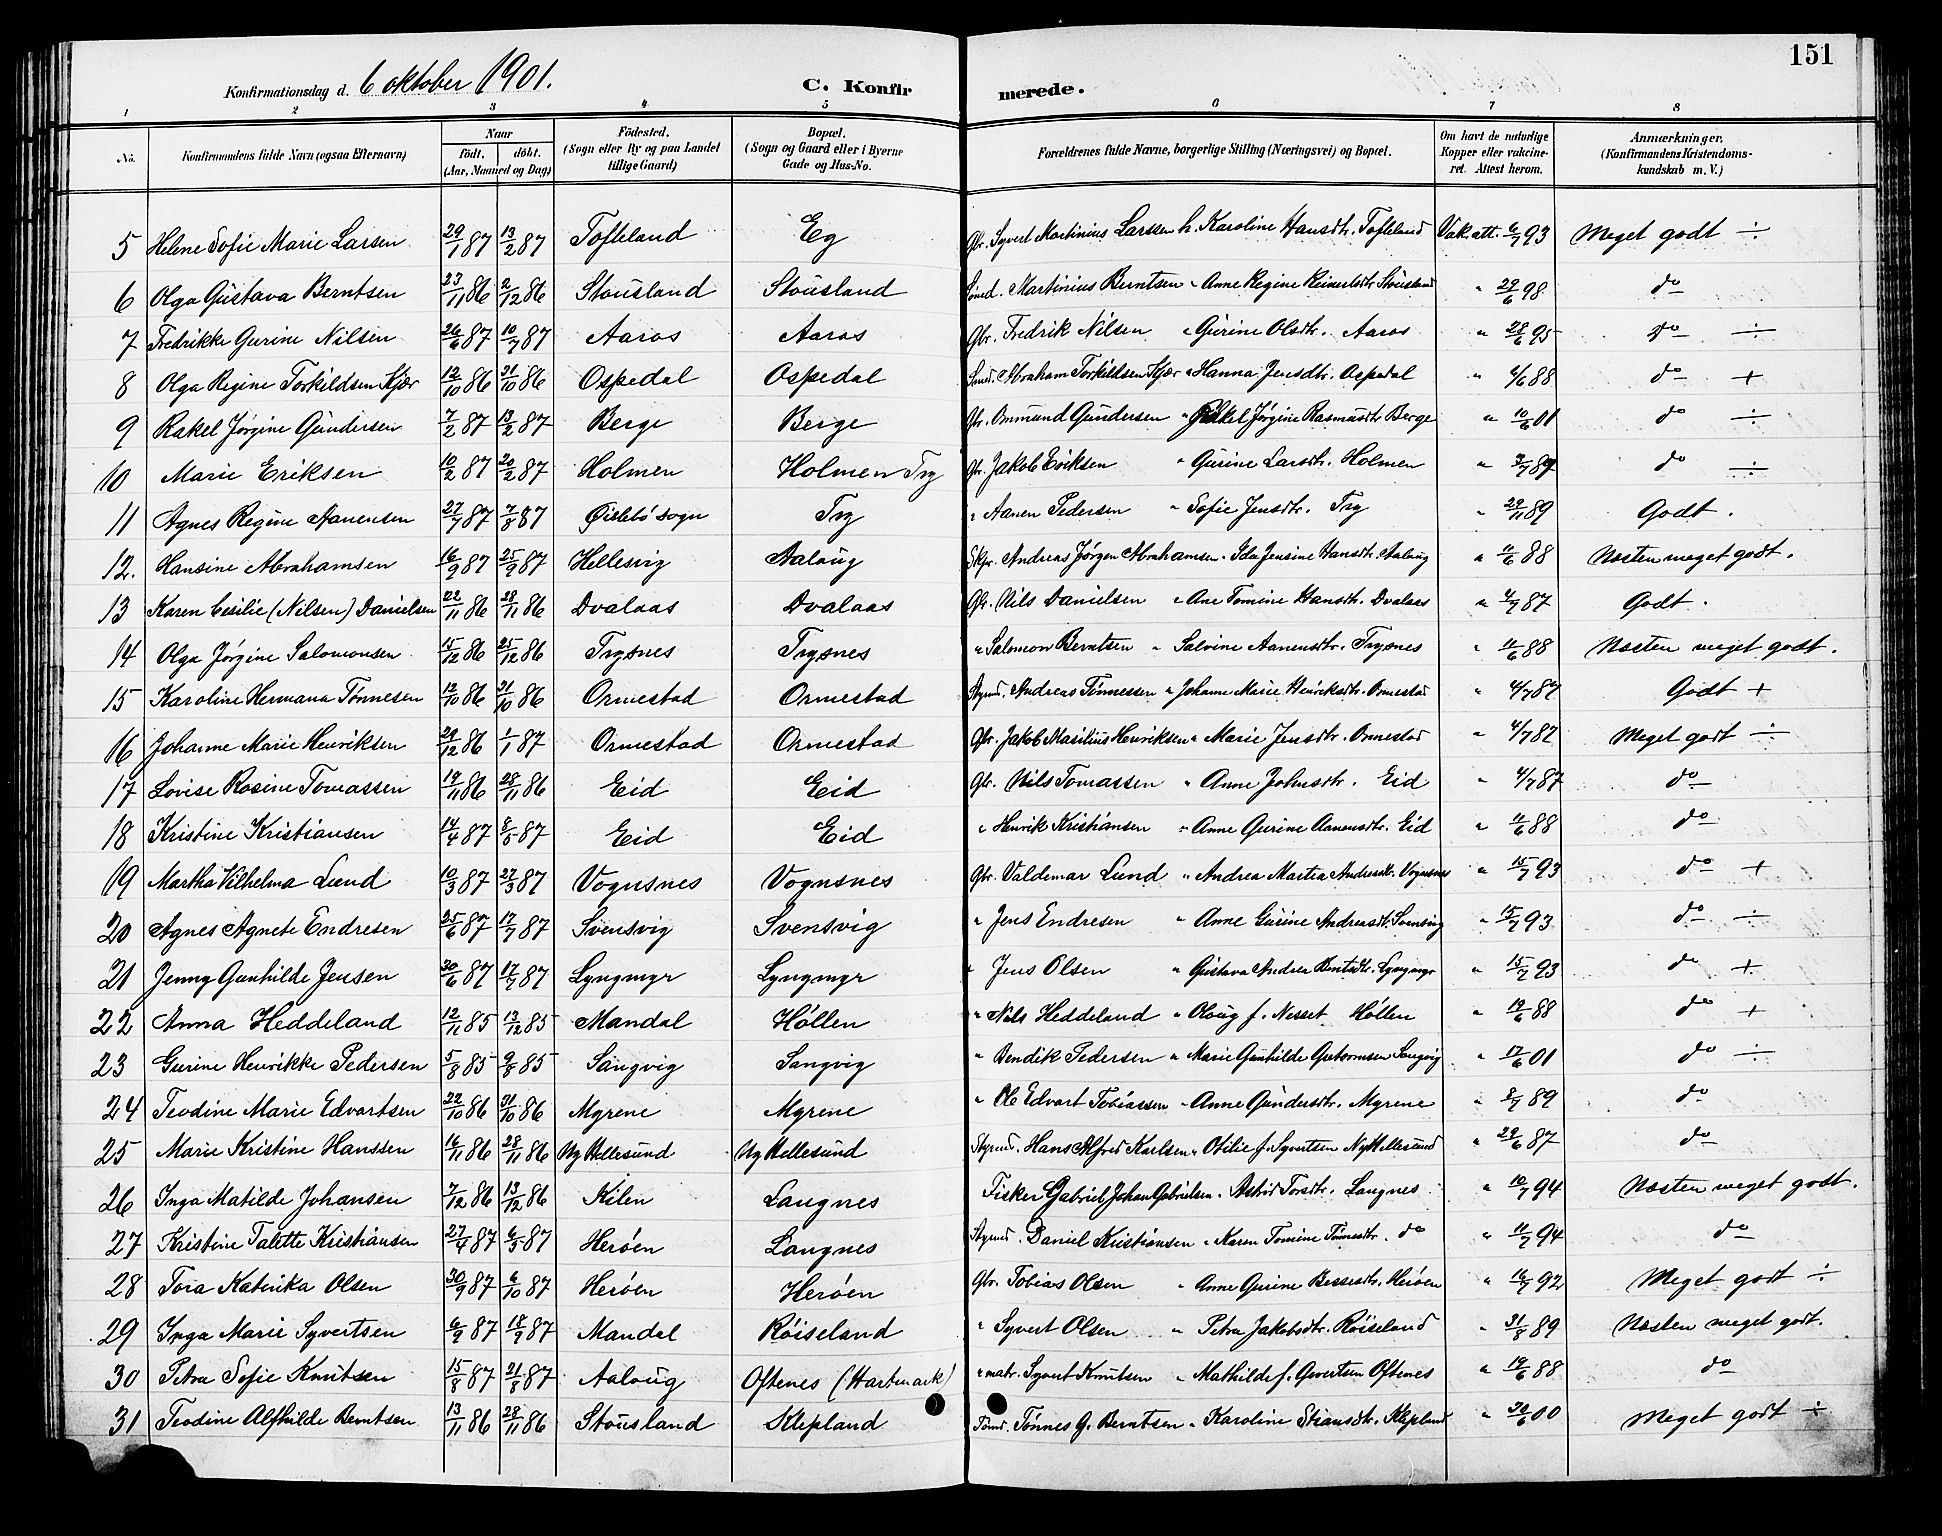 151
Konfirmationsdag d. 6 oktober 1901. C. Konfirmerede.
1 2 3 4 5 6 7 8
No. Konfirmandens fulde Navn (ogsaa Efternavn) Naar födt. döbt. (Aar, Maaned og Dag) Födested. (Sogn eller By og paa Landet tillige Gaard) Bopæl. (Sogn og Gaard eller i Byerne Gade og Hus-No. Forældrenes fulde Navne, borgerlige Stilling (Næringsvei) og Bopæl. Om havt de naturlige Kopper eller vakcineret. Attest herom. Anmærkninger. (Konfirmandens Kristendomskundskab m. V.)
5 Helene Sofie Marie Larsen 29/1 87 13/2 87 Tofteland Eg Gbr. Syvert Martinius Larssen h. Karoline Hansdtr. Tofteland Vak. att. 6/7 93 Meget godt ÷
6 Olga Gustava Berntsen 23/11 86 2/12 86 Stousland Stousland Martinius Berntsen " Anne Regine Reinertsdtr Stousland " 29/6 98 do
7 Fredrikke Gurine Nilsen 26/6 87 10/7 87 Aaros Aaros Gbr. Fredrik Nilsen " Gurine Olsdtr. Aaros " 28/6 95 do ÷
8 Olga Regine Torkildsen Kjær 12/10 86 31/10 86 Ospedal Ospedal Smd. Abraham Torkildsen Kjær " Hanna Jensdtr. Ospedal " 4/6 88 do +
9 Rakel Jørgine Gundersen 7/2 87 13/2 87 Berge Berge Gbr. Ommund Gundersen " Rakel Jørgine Rasmusdtr Berge " 10/6 01 do ÷
10 Marie Eriksen 10/2 87 20/2 87 Holmen Holmen Try Gbr. Jakob Eriksen " Gurine Larsdtr. Holmen " 3/7 89 do ÷
11 Agnes Regine Aanensen 27/7 87 7/8 87 Øislebö sogn Try " Aanen Pedersen " Sofie Jensdtr. Try " 29/11 89 Godt.
12. Hansine Abrahamsen 16/9 87 25/9 87 Hellesvig Aaloug Skpr. Andreas Jørgen Abrahamsen " Ida Jensine Hansdtr. Aaloug " 11/6 88 Næsten meget godt.
13 Karen Cesilie (Nilsen) Danielsen 22/11 86 28/11 86 Dvalaas Dvalaas Gbr. Nils Danielsen " Ane Tomine Hansdtr. Dvalaas " 4/7 87 Godt.
14 Olga Jørgine Salomonsen 15/12 86 25/12 86 Trysnes Trysnes " Salomon Berntsen " Salvine Aanensdtr. Trysnes " 11/6 88 Næsten meget godt.
15 Karoline Hermana Tønnesen 12/10 86 31/10 86 Ormestad Ormestad Styrmd. Andreas Tønnessen " Johanne Marie Henriksdtr. Ormestad " 4/7 87 Godt +
16 Johanne Marie Henriksen 29/12 86 1/1 87 Ormestad Ormestad Gbr. Jakob Masilius Henriksen " Marie Jensdtr. Ormestad " 4/7 87 Meget godt ÷
17 Lovise Rosine Tomassen 19/11 86 28/11 86 Eid Eid Gbr. Nils Tomassen " Anne Johnsdtr. Eid " 4/7 87 do
18 Kristine Kristiansen 14/4 87 8/5 87 Eid Eid " Henrik Kristiansen " Anne Gurine Aanensdtr. Eid " 11/6 88 do
19 Martha Vilhelma Lund 10/3 87 27/3 87 Vognsnes Vognsnes Gbr. Valdemar Lund " Andrea Martia Andersdtr. Vognsnes " 15/7 93 do +
20 Agnes Agnete Endresen 25/6 87 17/7 87 Svensvig Svensvig " Jens Endresen " Anne Gurine Andreasdtr. Svensvig " 15/7 93 do ÷
21 Jenny Gunhilde Jensen 30/6 87 17/7 87 Lyngmyr Lyngmyr " Jens Olsen " Gustava Andrea Berntsdtr. Lyngmyr " 15/7 93 do +
22 Anna Heddeland 12/11 85 13/12 85 Mandal Höllen " Nils Heddeland " Oloug f. Nesset Höllen " 19/6 88 do +
23 Gurine Henrikke Pedersen 5/8 85 9/8 85 Sangvig Sangvig " Bendik Pedersen " Marie Gunhilde Guttormsen Sangvig " 17/6 01 do ÷
24 Teodine Marie Edvartsen 22/10 86 31/10 86 Myrene Myrene " Ole Edvart Tobiassen " Anne Gundersdtr. Myrene " 8/7 89 do
25 Marie Kristine Hanssen 16/11 86 28/11 86 Ny Hellesund Ny Hellesund Styrmd. Hans Alfred Karlsen " Otilie f. Syvertsen Ny Hellesund " 29/6 87 do
26 Inga Matilde Johansen 7/12 86 13/12 86 Kilen Langnes Fisker Gabriel Johan Gabrielsen " Astrid Torsdtr. Langnes " 10/7 94 Næsten meget godt.
27 Kristine Talette Kristiansen 27/4 87 6/5 87 Heröen Langnes Styrmd. Daniel Kristiansen " Karen Tomine Tønnesdtr. do " 11/7 94 do
28 Tora Katerika Olsen 30/9 87 6/10 87 Heröen Heröen Gbr. Tobias Olsen " Anne Gurine Bessesdtr. Heröen " 16/7 92 Meget godt ÷
29 Inga Marie Syvertsen 6/9 87 18/9 87 Mandal Röiseland " Syvert Olsen " Petra Jakobsdtr. Röiseland " 31/8 89 Næsten meget godt.
30 Petra Sofie Knutsen 15/8 87 21/8 87 Aaloug Oftenes (Hartmark) " matr. Syvert Knutsen " Mathilde f. Gevertsen Oftenes " 19/6 88 do
31 Teodine Alfhilde Berntsen 13/11 86 28/11 86 Stousland Klepland Tønnes G. Berntsen " Karoline Stiansdtr. Klepland " 30/6 00 Meget godt ÷